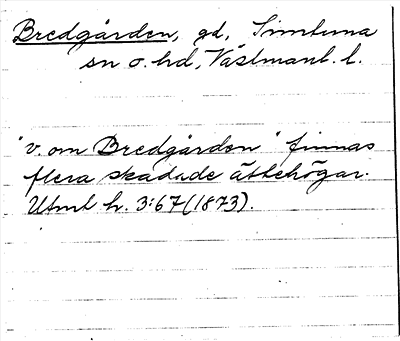 Bredgården, gd, Simtuna
sn o. hd, Västmanl. l.
"v. om Bredgården" finnas
flera skadade ättehögar.
Utml h. 3:67 (1873).